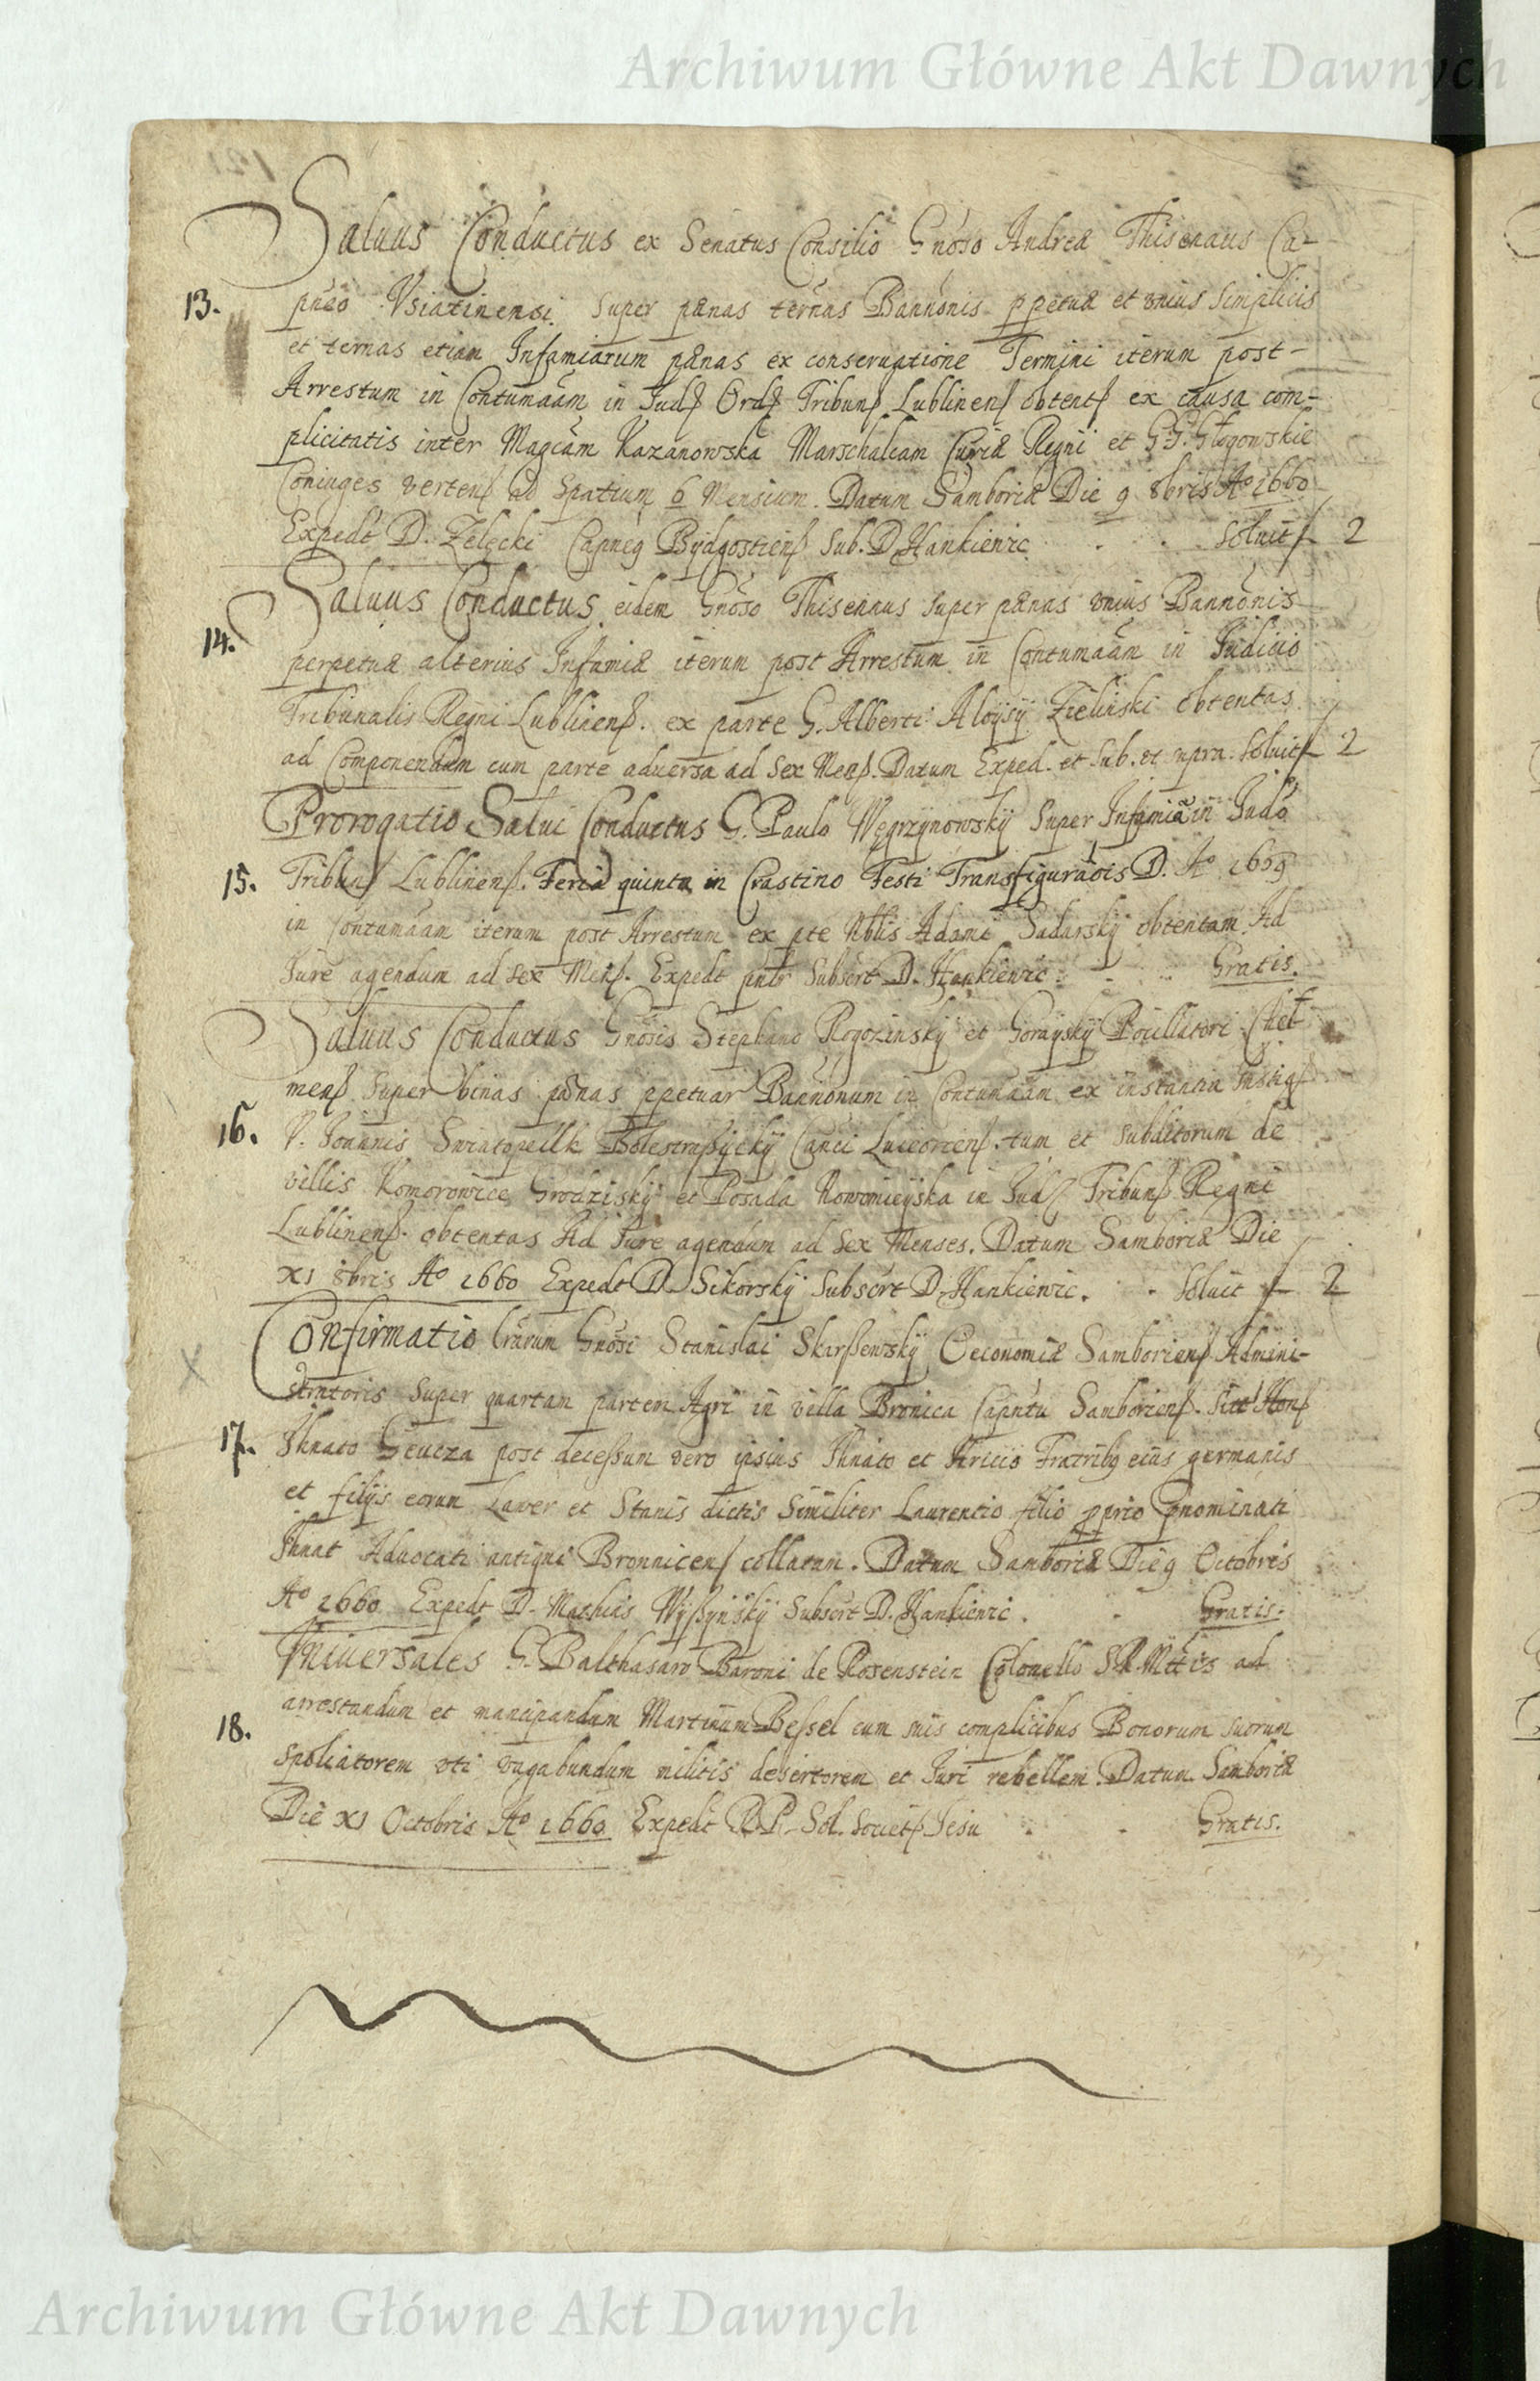 Archiwum Główne Akt Dawnych
Saluus Conductus ex Senatus Consilio Gnoso Andreæ Thisenaus Ca-
13. pneo Vsiatinensi super pænas ternas Bannonis ppetuæ et vnius simplicis
et ternas etiam Infamiarum pænas ex conseruatione Termini iterum post
Arrestum in Contumaam in Jud Ord Tribun Lublinen obtent ex causa com-
plicitatis inter Magcam Kazanowska Marschalcam Curiæ Regni et GG. Głogowskie
Coniuges verten ad spatium 6 Mensium. Datum Samboriæ Die 9 8bris Ao 1660
Expedt D. Zelęcki Capneg Bydgostien sub. D Hankiewic . . soluit f 2
Saluus Conductus eidem Gnoso Thisenaus super pænas vnius Bannonis
14. perpetuæ alterius Infamiæ iterum post Arrestum in Contumaam in Judicio
Tribunalis Regni Lublinen. ex parte G. Alberti Aloysy Zielinski obtentas
ad Componendum cum parte aduersa ad sex Men. Datum Exped. et sub. ut supra. soluit f 2
Prorogatio Salui Conductus G. Paulo Węgrzynowsky super Infamia in Judo
15. Tribun Lublinen. Feria quinta in Crastino Festi Transfiguraois D. Ao 1659
in Contumaam iterum post Arrestum ex pte Nblis Adami Sadarsky obtentam Ad
Jure agendum ad sex Men. Expedt subscrt D. Hankiewic . . Gratis.
Saluus Conductus Gnosis Stephano Rogozinsky et Goraysky Pocillatori Chel-
men super binas pænas ppetuar Bannonum in Contumaam ex instantia Instig
16. V. Joannis Swiatopełk Bolestraszycky Canci Luceorien. tum et subditorum de
villis Komorowice Grodzisky et Posada Nowomieyska in Jud Tribun Regni
Lublinen. obtentas Ad Jure agendum ad sex Menses. Datum Samboriæ Die
XI 8bris Ao 1660 Expedt D. Sikorsky subscrt D. Hankiewic. . soluit f 2
Confirmatio Lrarum Gnosi Stanislai Skarszewsky Oeconomiæ Samborien Admini-
stratoris super quartam partem Agri in villa Bronica Capntu Samborien. sitt Hon
17. Ihnato post decessum vero ipsius Ihnato et Fratribg eius germanis
et filijs eorum Lawer et Stanis dictis similiter Laurentio filio pprio pnominati
Ihnat Aduocati antiqui Bronnicen collatam. Datum Samboriæ Die 9 Octobris
Ao 1660 Expedt D. Mathias Wyszynsky subscrt D. Hankiewic . . Gratis.
Vniuersales G. Balthasaro Baroni de Rosenstein Colonello S. R. Mttis ad
18. arrestandum et mancipandum Martinum Bessel cum suis complicibus Bonorum suorum
spoliatorem vti vagabundum militis desertorem et Juri rebellem. Datum Samboriæ
Die XI Octobris Ao 1660 Expedt Jesu . . Gratis.
Archiwum Główne Akt Dawnych